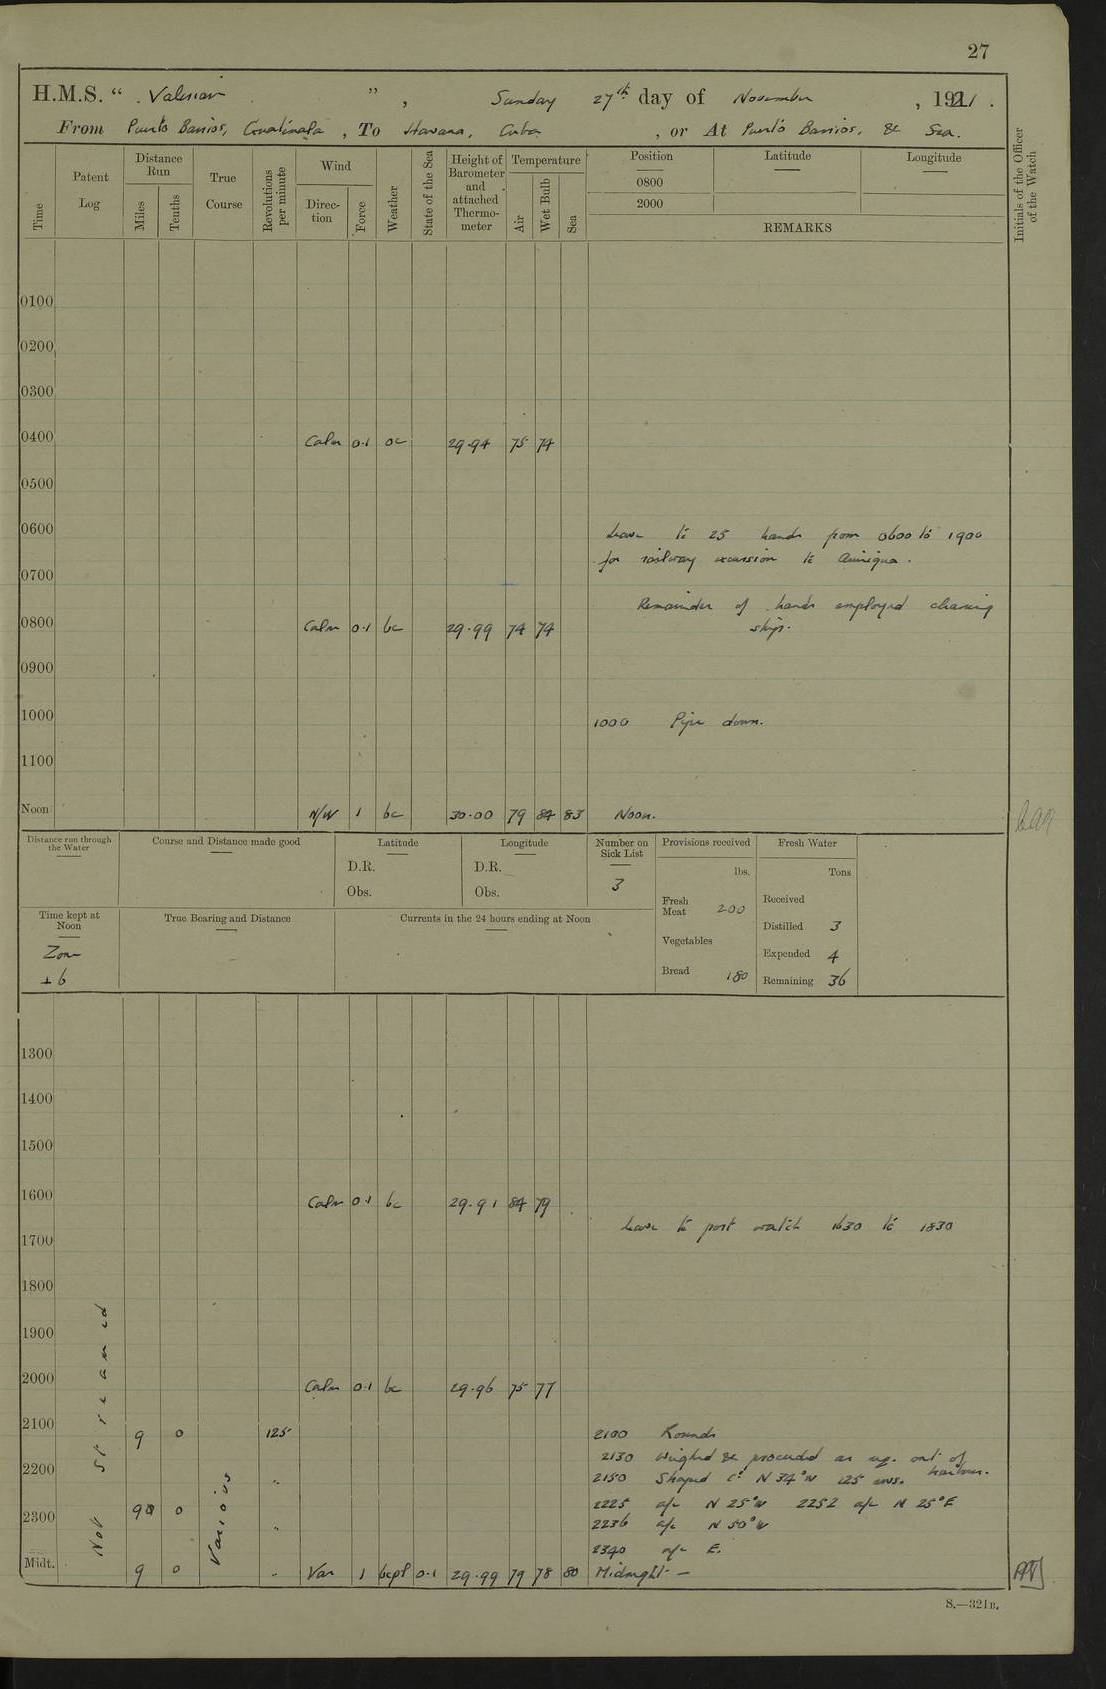 27
H.M.S. " Valerian ", Sunday 27th day of November, 1921.
From Puerto Barrios, Guatimala, To Havana, Cuba, or At Puerto Barrios, & Sea.
Time
Patent Log
Distance Run
Miles
Tenths
True Course
Revolutions per minute
Wind
Direction
Force
Weather
State of the Sea
Height of Barometer and attached Thermometer
Temperature
Air
Wet Bulb
Sea
Position
Latitude
Longitude
0800
2000
REMARKS
Initials of the Officer of the Watch
0100
0200
0300
0400 Calm 0.1 oc 29.94 75 74
0500
0600 Leave to 25 hands from 0600 to 1900
for railway excursion to Quirigua.
0700
Remainder of hands employed cleaning
0800 Calm 0.1 bc 29.99 74 74 ship.
0900
1000 1000 Pipe down.
1100
Noon N/W 1 bc 30.00 79 84 83 Noon.
Distance run through the Water
Course and Distance made good
Latitude
D.R.
Obs.
Longitude
D.R.
Obs.
Number on Sick List
3
Provisions received
lbs.
Fresh Meat 200
Vegetables
Bread 180
Fresh Water
Tons
Received
Distilled 3
Expended 4
Remaining 36
Time kept at Noon
Zone
+6
True Bearing and Distance
Currents in the 24 hours ending at Noon
1300
1400
1500
1600 Calm 0.1 bc 29.91 84 79
Leave to port watch 1630 to 1830
1700
1800
1900
2000 Calm 0.1 bc 29.96 75 77
Not streamed
Various
2100 9 0 125 2100 Rounds
2130 Weighed & proceeded as req. out of harbour.
2200 " 2150 Shaped Co N 34°W 125 revs.
2225 a/c N 25°W 2252 a/c N 25°E
2300 9 0 " 2236 a/c N 50°W
2340 a/c E.
Midt. 9 0 " Var 1 bcpl 0.1 29.99 79 78 80 Midnight —
S.—321B.